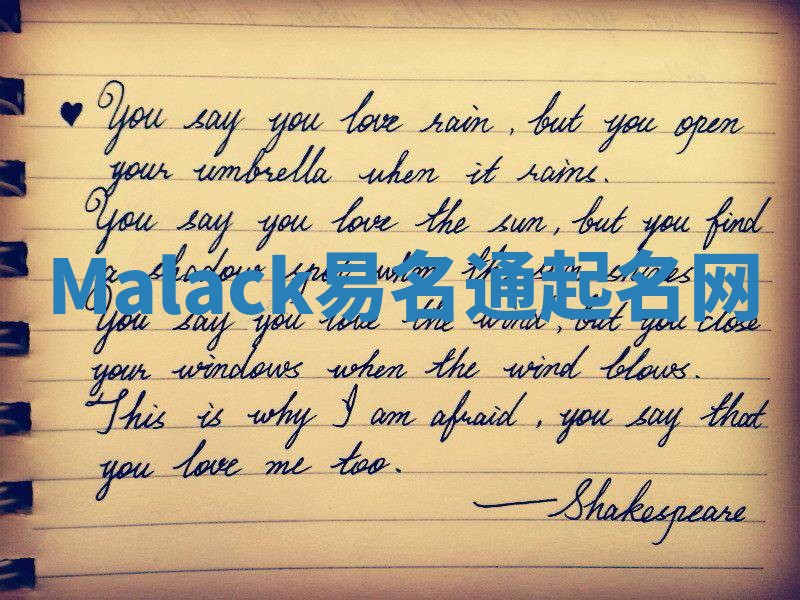 ♥ You say you love rain, but you open
your umbrella when it rains.
You say you love the sun, but you find
a shadow spot when the sun shines
Malack易名通起名网
You say you love the wind, but you close
your windows when the wind blows.
This is why I am afraid, you say that
you love me too.
—Shakespeare